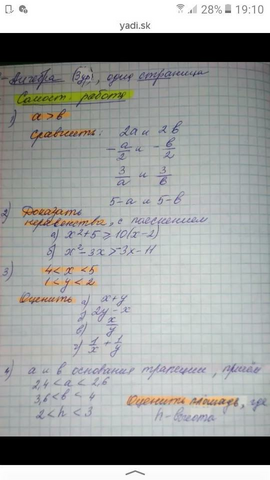 28% 19:10
yadi.sk
Алгебра (3ур), одна страница
Самост. работа
1) a > b
Сравнить: 2a и 2b
-a/2 и -b/2
3/a и 3/b
5-a и 5-b
2) Доказать
неравенства, с пояснением
а) x²+5 ≥ 10(x-2)
б) x²-3x > 3x-11
3) 4 < x < 5
1 < y < 2
Оценить а) x+y
б) 2y-x
в) x/y
г) 1/x + 1/y
a и b основания трапеции, причём
2,4 < a < 2,6
3,6 < b < 4
2 < h < 3
Оценить площадь, где
h-высота